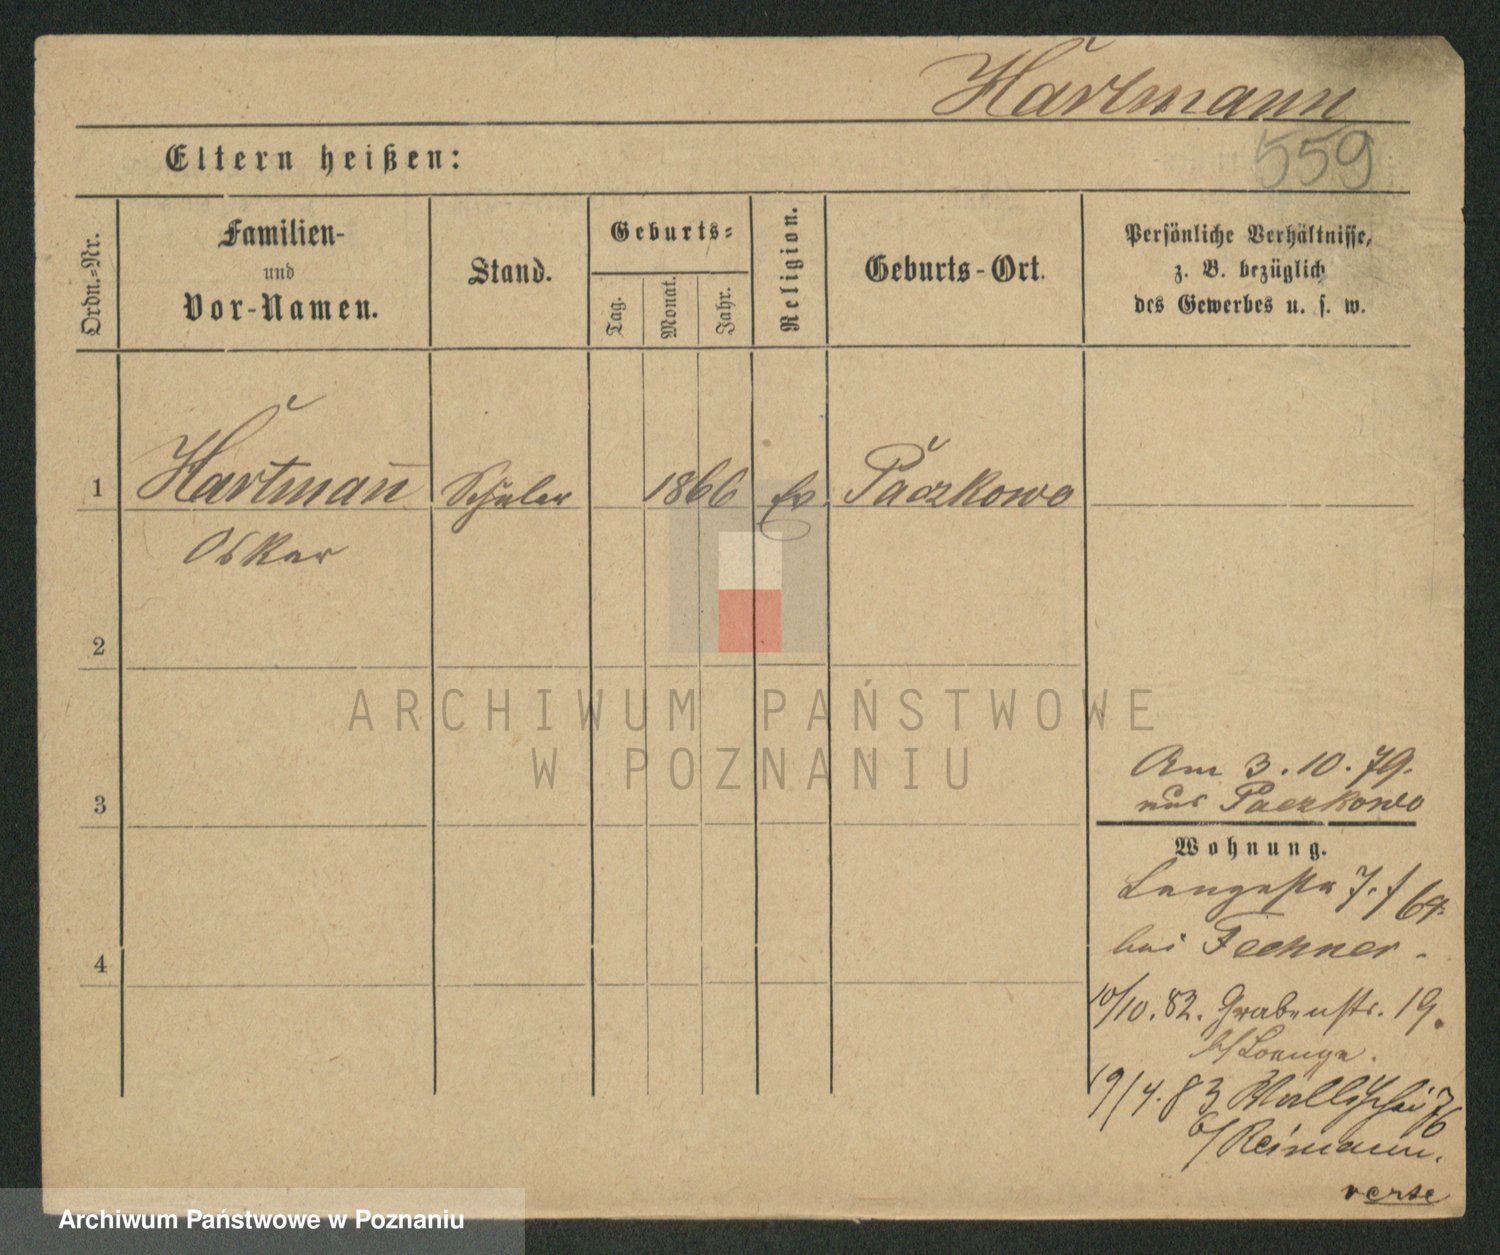 Hartmann
559
Eltern heißen:
Ordn.=Nr.
Familien-
und
Vor-Namen.
Stand.
Geburts=
Tag.
Monat.
Jahr.
Religion.
Geburts-Ort.
Persönliche Verhältnisse,
z. B. bezüglich
des Gewerbes u. s. w.
1 Hartman̅ Schüler 1866 Ev. Paczkowo
Oskar
2
ARCHIWUM PAŃSTWOWE
W POZNANIU
3
Am 3.10.79.
aus Paczkowo
Wohnung.
Langestr 7. f
bei Fechner.
4
10/10.82. Grabenstr. 19.
b/
19/4.83 Wallischei 76
b/Reimann.
verte
Archiwum Państwowe w Poznaniu